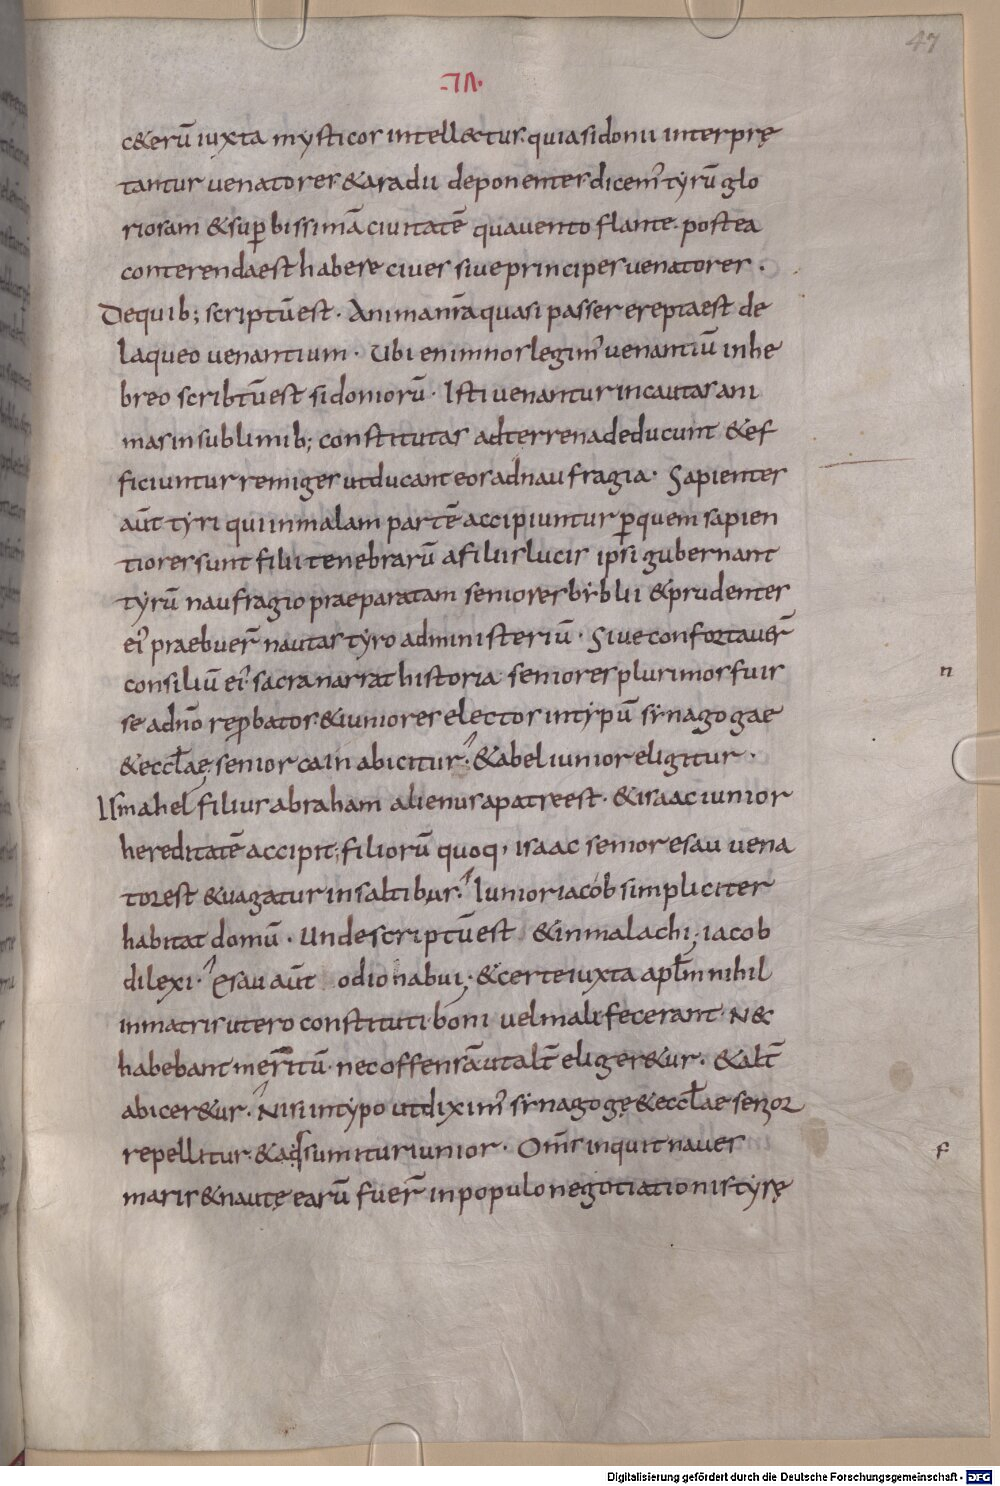 47
·VII·
c&erū iuxta mysticos intellectus. quia sidonii interprę
tantur uenatores & aradii deponentes dicem' tyrū glo
riosam & sup̱bissimā ciuitatē qua uento flante. postea
conterenda est habere ciues siue principes uenatores.
De quib; scriptū est. Anima nr̄a quasi passer erepta est de
laqueo uenantium. Ubi enim nos legim' uenantiū in he
breo scribtū est sidoniorū. Isti uenantur incautas ani
mas in sublimib; constitutas ad terrena deducunt & ef
ficiuntur remiges ut ducant eos ad naufragia. Sapientes
aūt tyri qui in malam partē accipiuntur p̱quem sapien
tiores sunt filii tenebrarū a filiis lucis ipsi gubernant
tyrū naufragio praeparatam seniores bybli & prudentes
ei' praebuer̄ nautas tyro administeriū. Siue confortauer̄
consiliū ei' sacra narrat historia seniores plurimos fuis
n
se ad nō rep̱batos & iuniores electos in typū synagogae
& eccl̄ae, senior cain abicitur. & abel iunior eligitur.
Ismahel filius abraham alienus a patre est. & isaac iunior
hereditatē accipit, filiorū quoq, isaac senior esau uena
tor est & uagatur in saltibus. Iunior iacob simpliciter
habitat domū. Unde scriptū est & in malachi, iacob
dilexi. Esau aūt odio habui, & certe iuxta apl̄m nihil
in matris utero constituti boni uel mali fecerant. N&
habebant meritū. nec offensā ut alt̄ eliger&ur. & alt̄
abicer&ur. Nisi in typo ut dixim' synagogę & eccl̄ae senior
repellitur. & adsumitur iunior. Om̄s inquit naues
f
maris & nautę earū fuer̄ in populo negotiationis tyrę
Digitalisierung gefördert durch die Deutsche Forschungsgemeinschaft - DFG